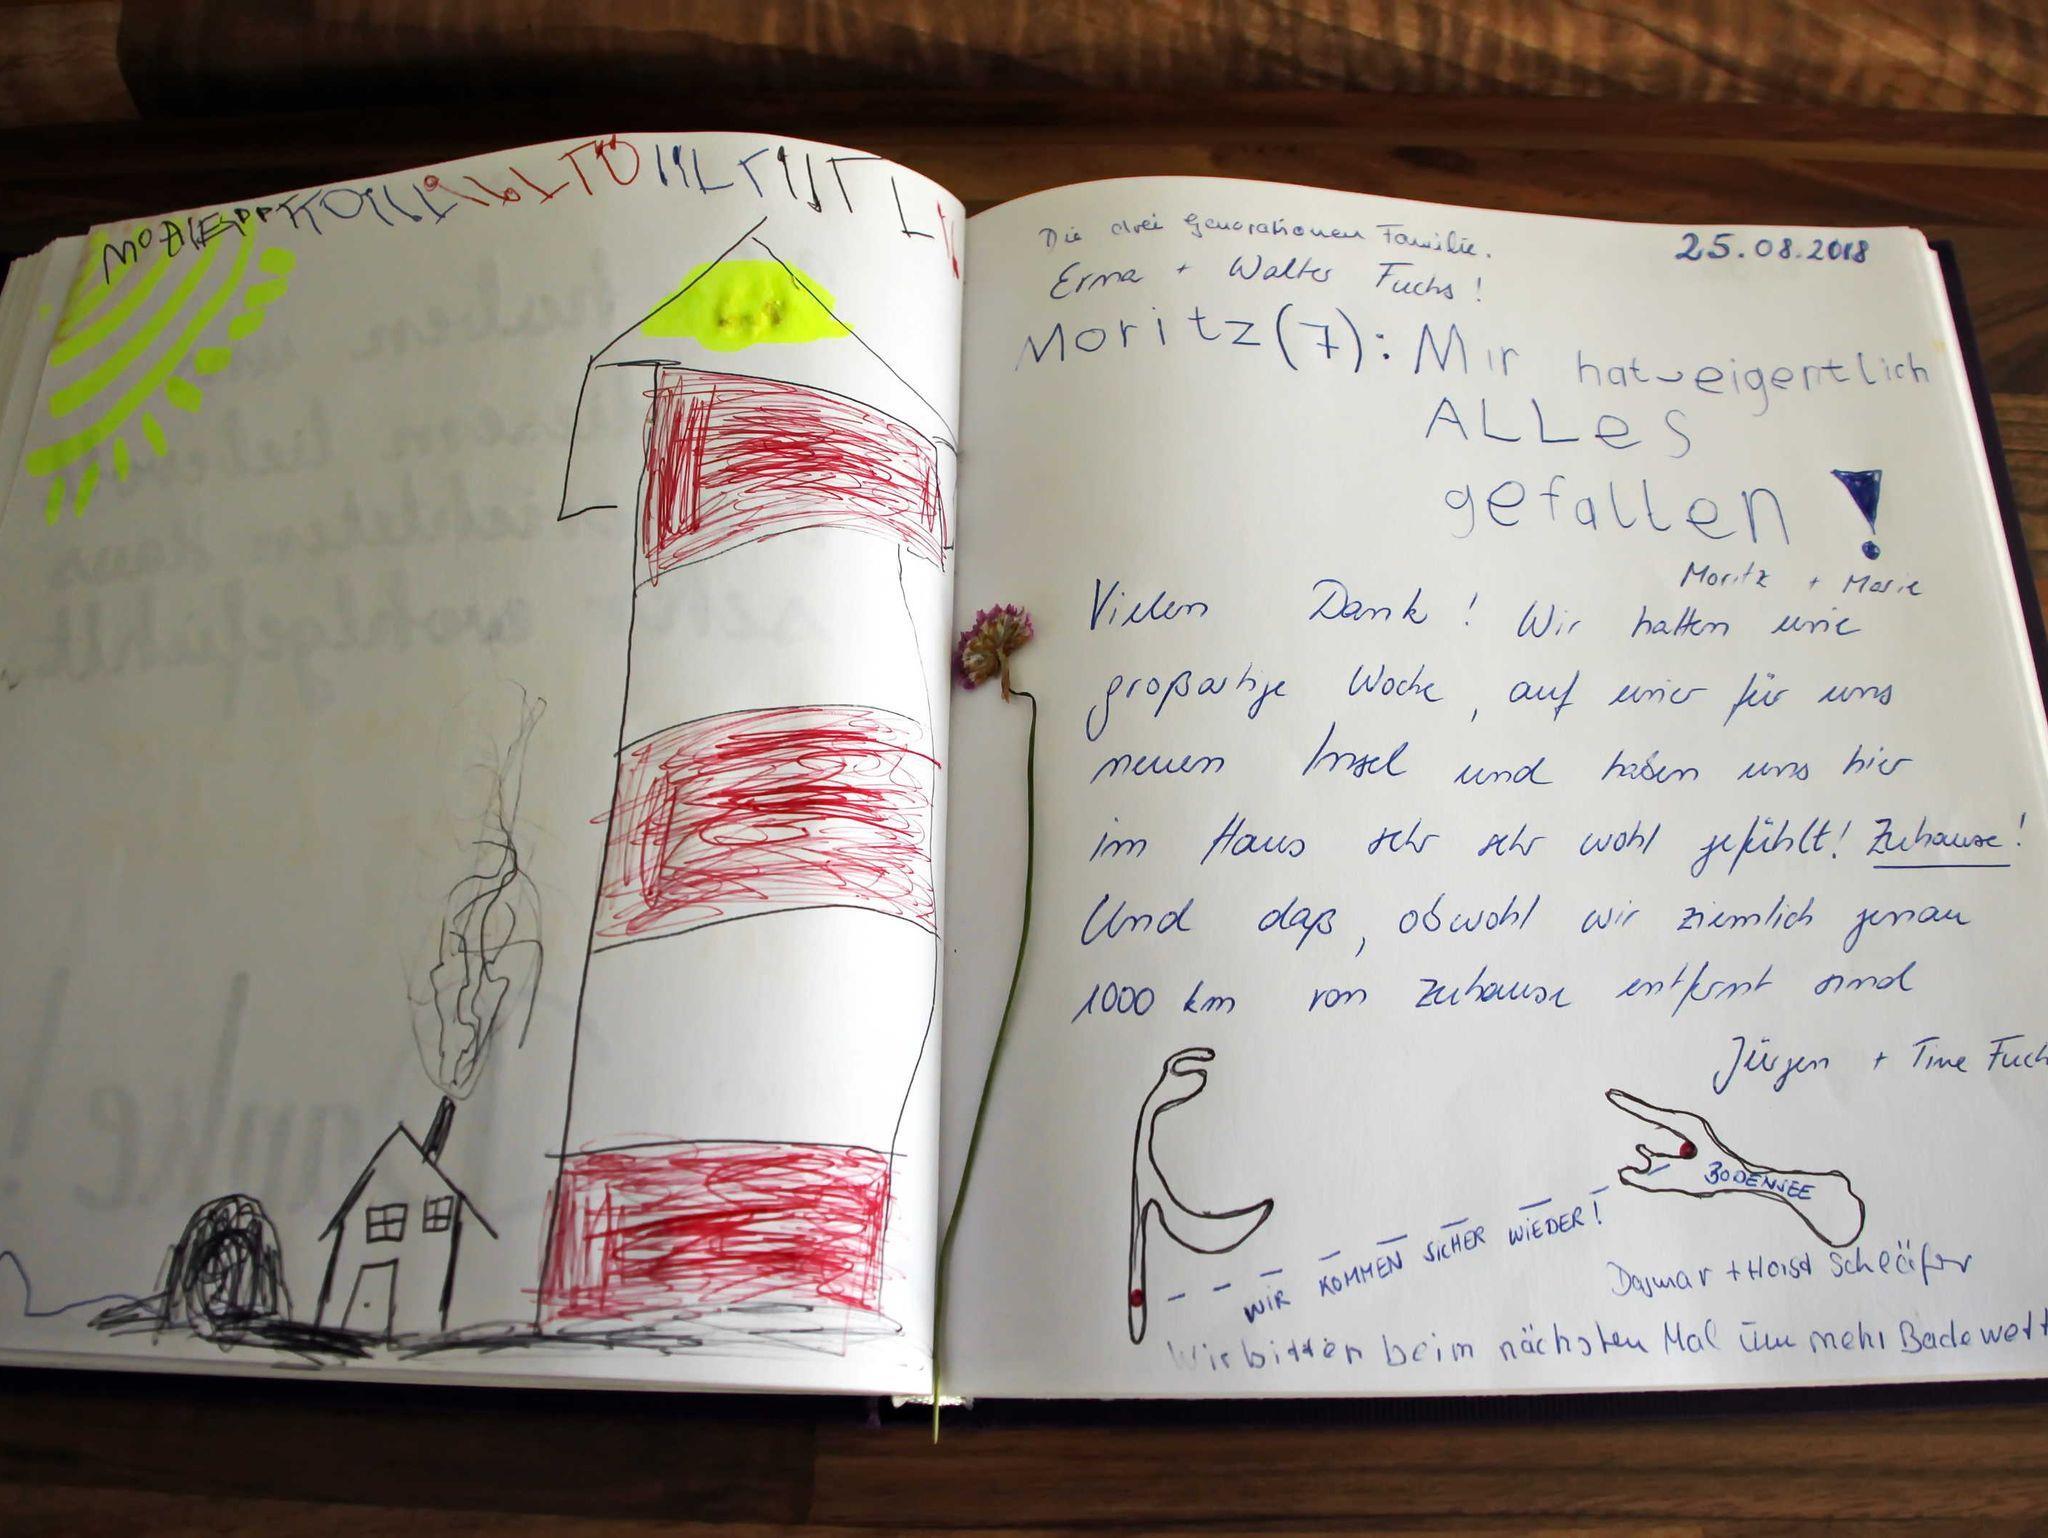 Die drei Generationen Familie.
25.08.2018
Erma + Walter Fuchs!
Moritz (7): Mir hat eigentlich
ALLes
gefallen !
Moritz + Marie
Vielen Dank! Wir hatten eine
großartige Woche, auf einer für uns
neuen Insel und haben uns hier
im Haus sehr sehr wohl gefühlt! Zuhause!
Und daß, obwohl wir ziemlich genau
1000 km von zuhause entfernt sind
Jürgen + Tine Fuch
BODENSEE
WIR KOMMEN SICHER WIEDER!
Dagmar + Horst Schläfer
Wir bitten beim nächsten Mal um mehr Badewett